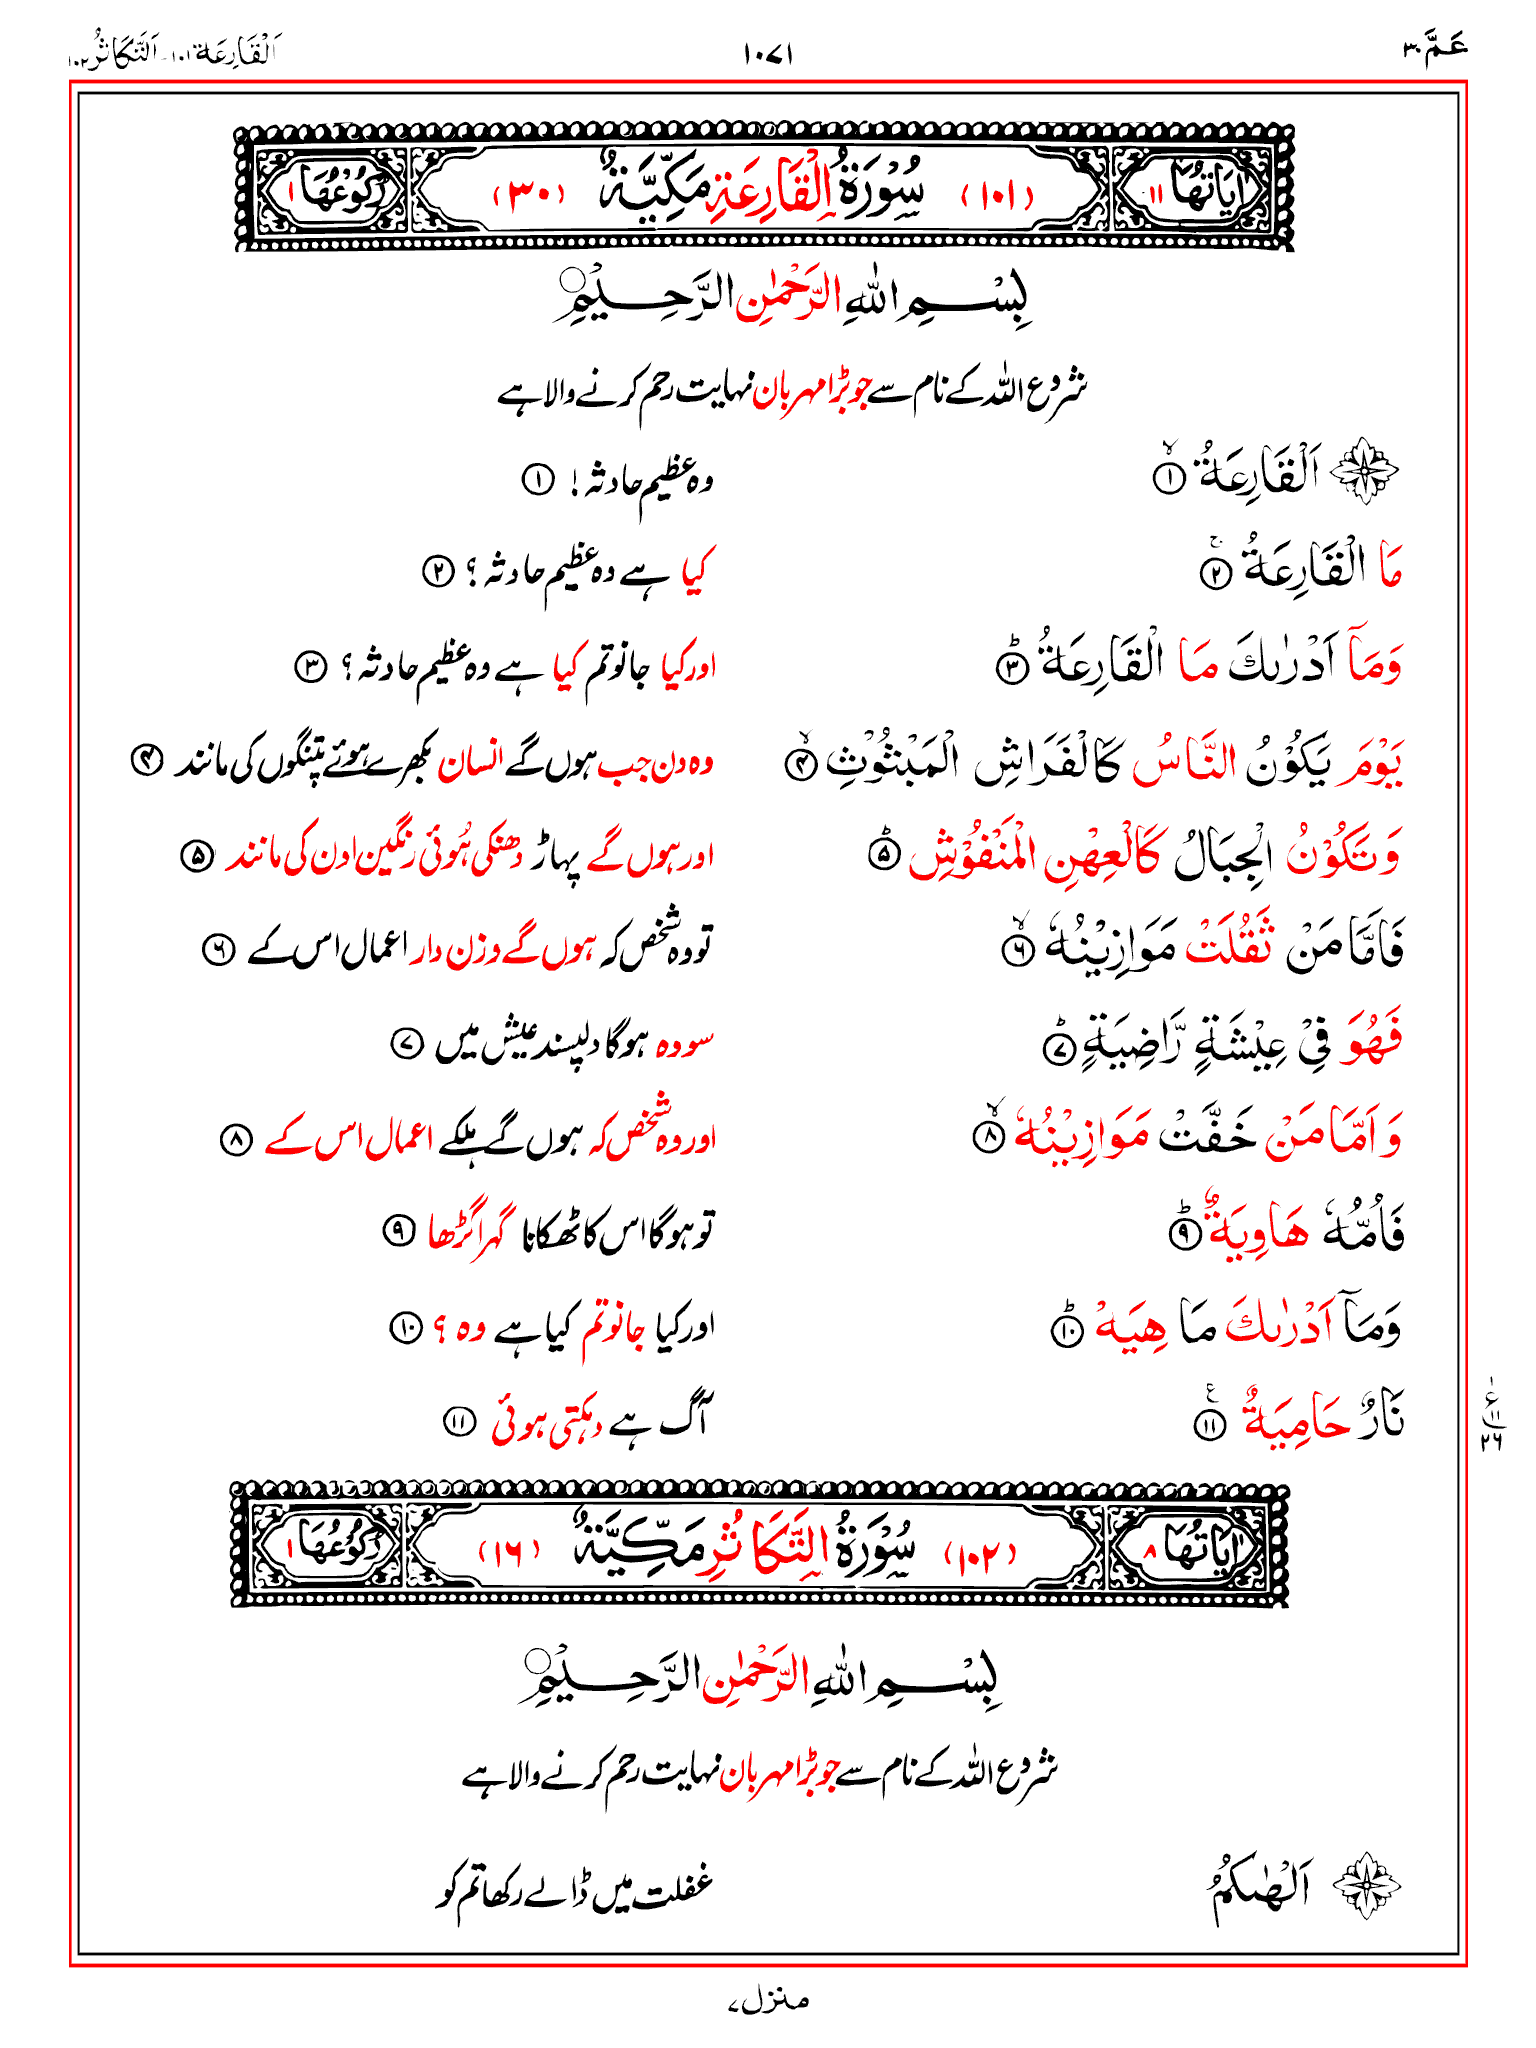 عَمَّ ٣٠ ١٠٧١ اَلْقَارِعَة ١٠١۔ اَلتَّكَاثُر ١٠٢
اٰيَاتُهَا ١١ (١٠١) سُوْرَةُ الْقَارِعَةِ مَكِّيَّةٌ (٣٠) رُكُوْعُهَا ١
بِسْمِ اللّٰهِ الرَّحْمٰنِ الرَّحِيْمِ
شروع اللہ کے نام سے جو بڑا مہربان نہایت رحم کرنے والا ہے
اَلْقَارِعَةُ ۙ‏﴿١﴾ وہ عظیم حادثہ! ﴿١﴾
مَا الْقَارِعَةُ ۚ‏﴿٢﴾ کیا ہے وہ عظیم حادثہ؟ ﴿٢﴾
وَمَاۤ اَدْرٰىكَ مَا الْقَارِعَةُ ؕ‏﴿٣﴾ اور کیا جانو تم کیا ہے وہ عظیم حادثہ؟ ﴿٣﴾
يَوْمَ يَكُوْنُ النَّاسُ كَالْفَرَاشِ الْمَبْثُوْثِ ۙ‏﴿۴﴾ وہ دن جب ہوں گے انسان بکھرے ہوئے پتنگوں کی مانند ﴿۴﴾
وَتَكُوْنُ الْجِبَالُ كَالْعِهْنِ الْمَنْفُوْشِ ؕ‏﴿۵﴾ اور ہوں گے پہاڑ دھنکی ہُوئی رنگین اون کی مانند ﴿۵﴾
فَاَمَّا مَنْ ثَقُلَتْ مَوَازِيْنُهٗ ۙ‏﴿٦﴾ تو وہ شخص کہ ہوں گے وزن دار اعمال اس کے ﴿٦﴾
فَهُوَ فِىْ عِيْشَةٍ رَّاضِيَةٍ ؕ‏﴿٧﴾ سو وہ ہوگا دلپسند عیش میں ﴿٧﴾
وَاَمَّا مَنْ خَفَّتْ مَوَازِيْنُهٗ ۙ‏﴿٨﴾ اور وہ شخص کہ ہوں گے ہلکے اعمال اس کے ﴿٨﴾
فَاُمُّهٗ هَاوِيَةٌ ؕ‏﴿٩﴾ تو ہوگا اس کا ٹھکانا گہرا گڑھا ﴿٩﴾
وَمَاۤ اَدْرٰىكَ مَا هِيَهْ ؕ‏﴿١٠﴾ اور کیا جانو تم کیا ہے وہ؟ ﴿١٠﴾
نَارٌ حَامِيَةٌ ‏﴿١١﴾ آگ ہے دہکتی ہوئی ﴿١١﴾
ع ١ ١١ ٢٦
اٰيَاتُهَا ٨ (١٠٢) سُوْرَةُ التَّكَاثُرِ مَكِّيَّةٌ (١٦) رُكُوْعُهَا ١
بِسْمِ اللّٰهِ الرَّحْمٰنِ الرَّحِيْمِ
شروع اللہ کے نام سے جو بڑا مہربان نہایت رحم کرنے والا ہے
اَلْهٰٮكُمُ غفلت میں ڈالے رکھا تم کو
منزل ٧